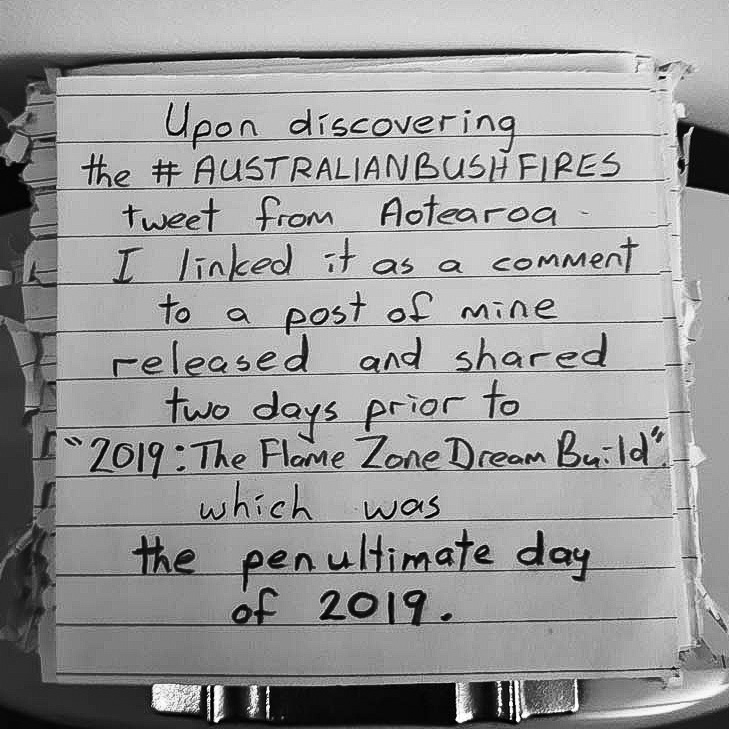 Upon discovering
the # AUSTRALIANBUSHFIRES
tweet from Aotearoa -
I linked it as a comment
to a post of mine
released and shared
two days prior to
"2019: The Flame Zone Dream Build"
which was
the penultimate day
of 2019.